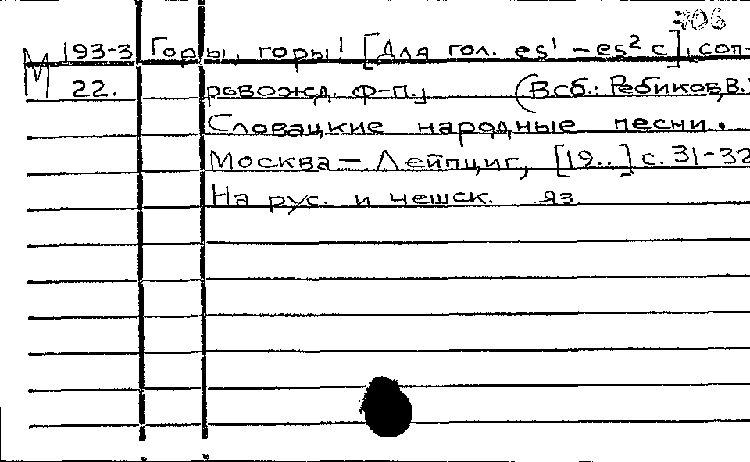 306
М 193-3 Горы, горы! [Для гол. es¹ – es² с], соп-
22. ровожд. ф-п.] (В сб.: Ребиков, В.
Словацкие народные песни.
Москва – Лейпциг, [19..] с. 31-32
На рус. и чешск. яз.